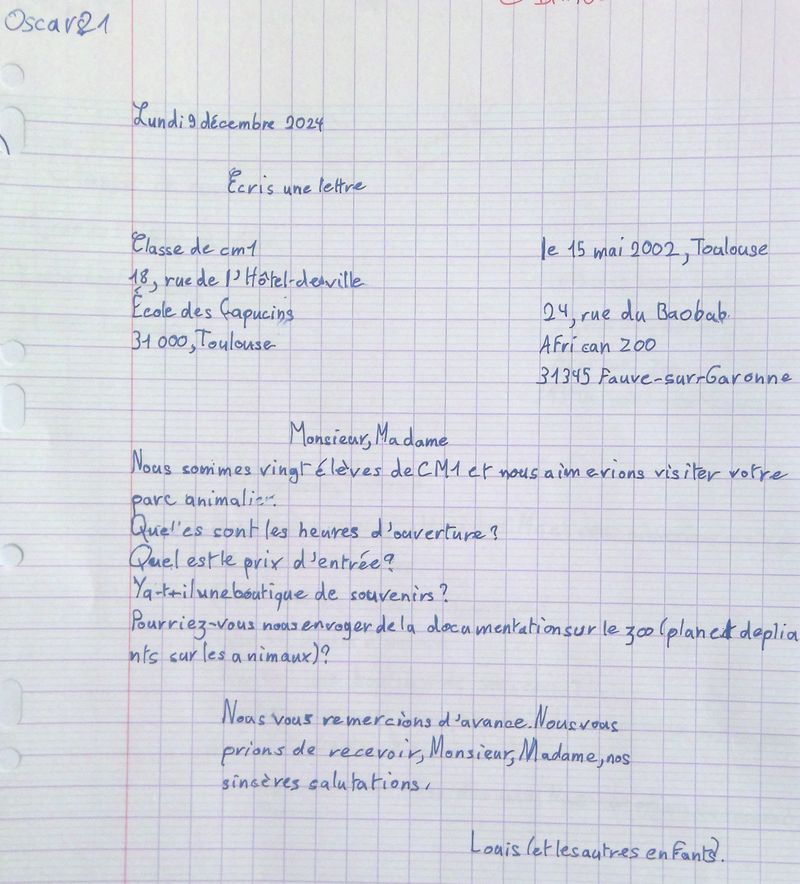 Oscar21
Lundi 9 décembre 2024
Ecris une lettre
Classe de cm1
18, rue de l'Hôtel-de-ville
École des Capucins
31 000, Toulouse
le 15 mai 2002, Toulouse
24, rue du Baobab
African Zoo
31345 Fauve-sur-Garonne
Monsieur, Madame
Nous sommes vingt élèves de CM1 et nous aimerions visiter votre
parc animalier.
Quelles sont les heures d'ouverture ?
Quel est le prix d'entrée ?
Ya-t-il une boutique de souvenirs ?
Pourriez-vous nous envoyer de la documentation sur le zoo (plan et deplia
nts sur les animaux) ?
Nous vous remercions d'avance. Nous vous
prions de recevoir, Monsieur, Madame, nos
sincères salutations.
Louis (et les autres enfants).